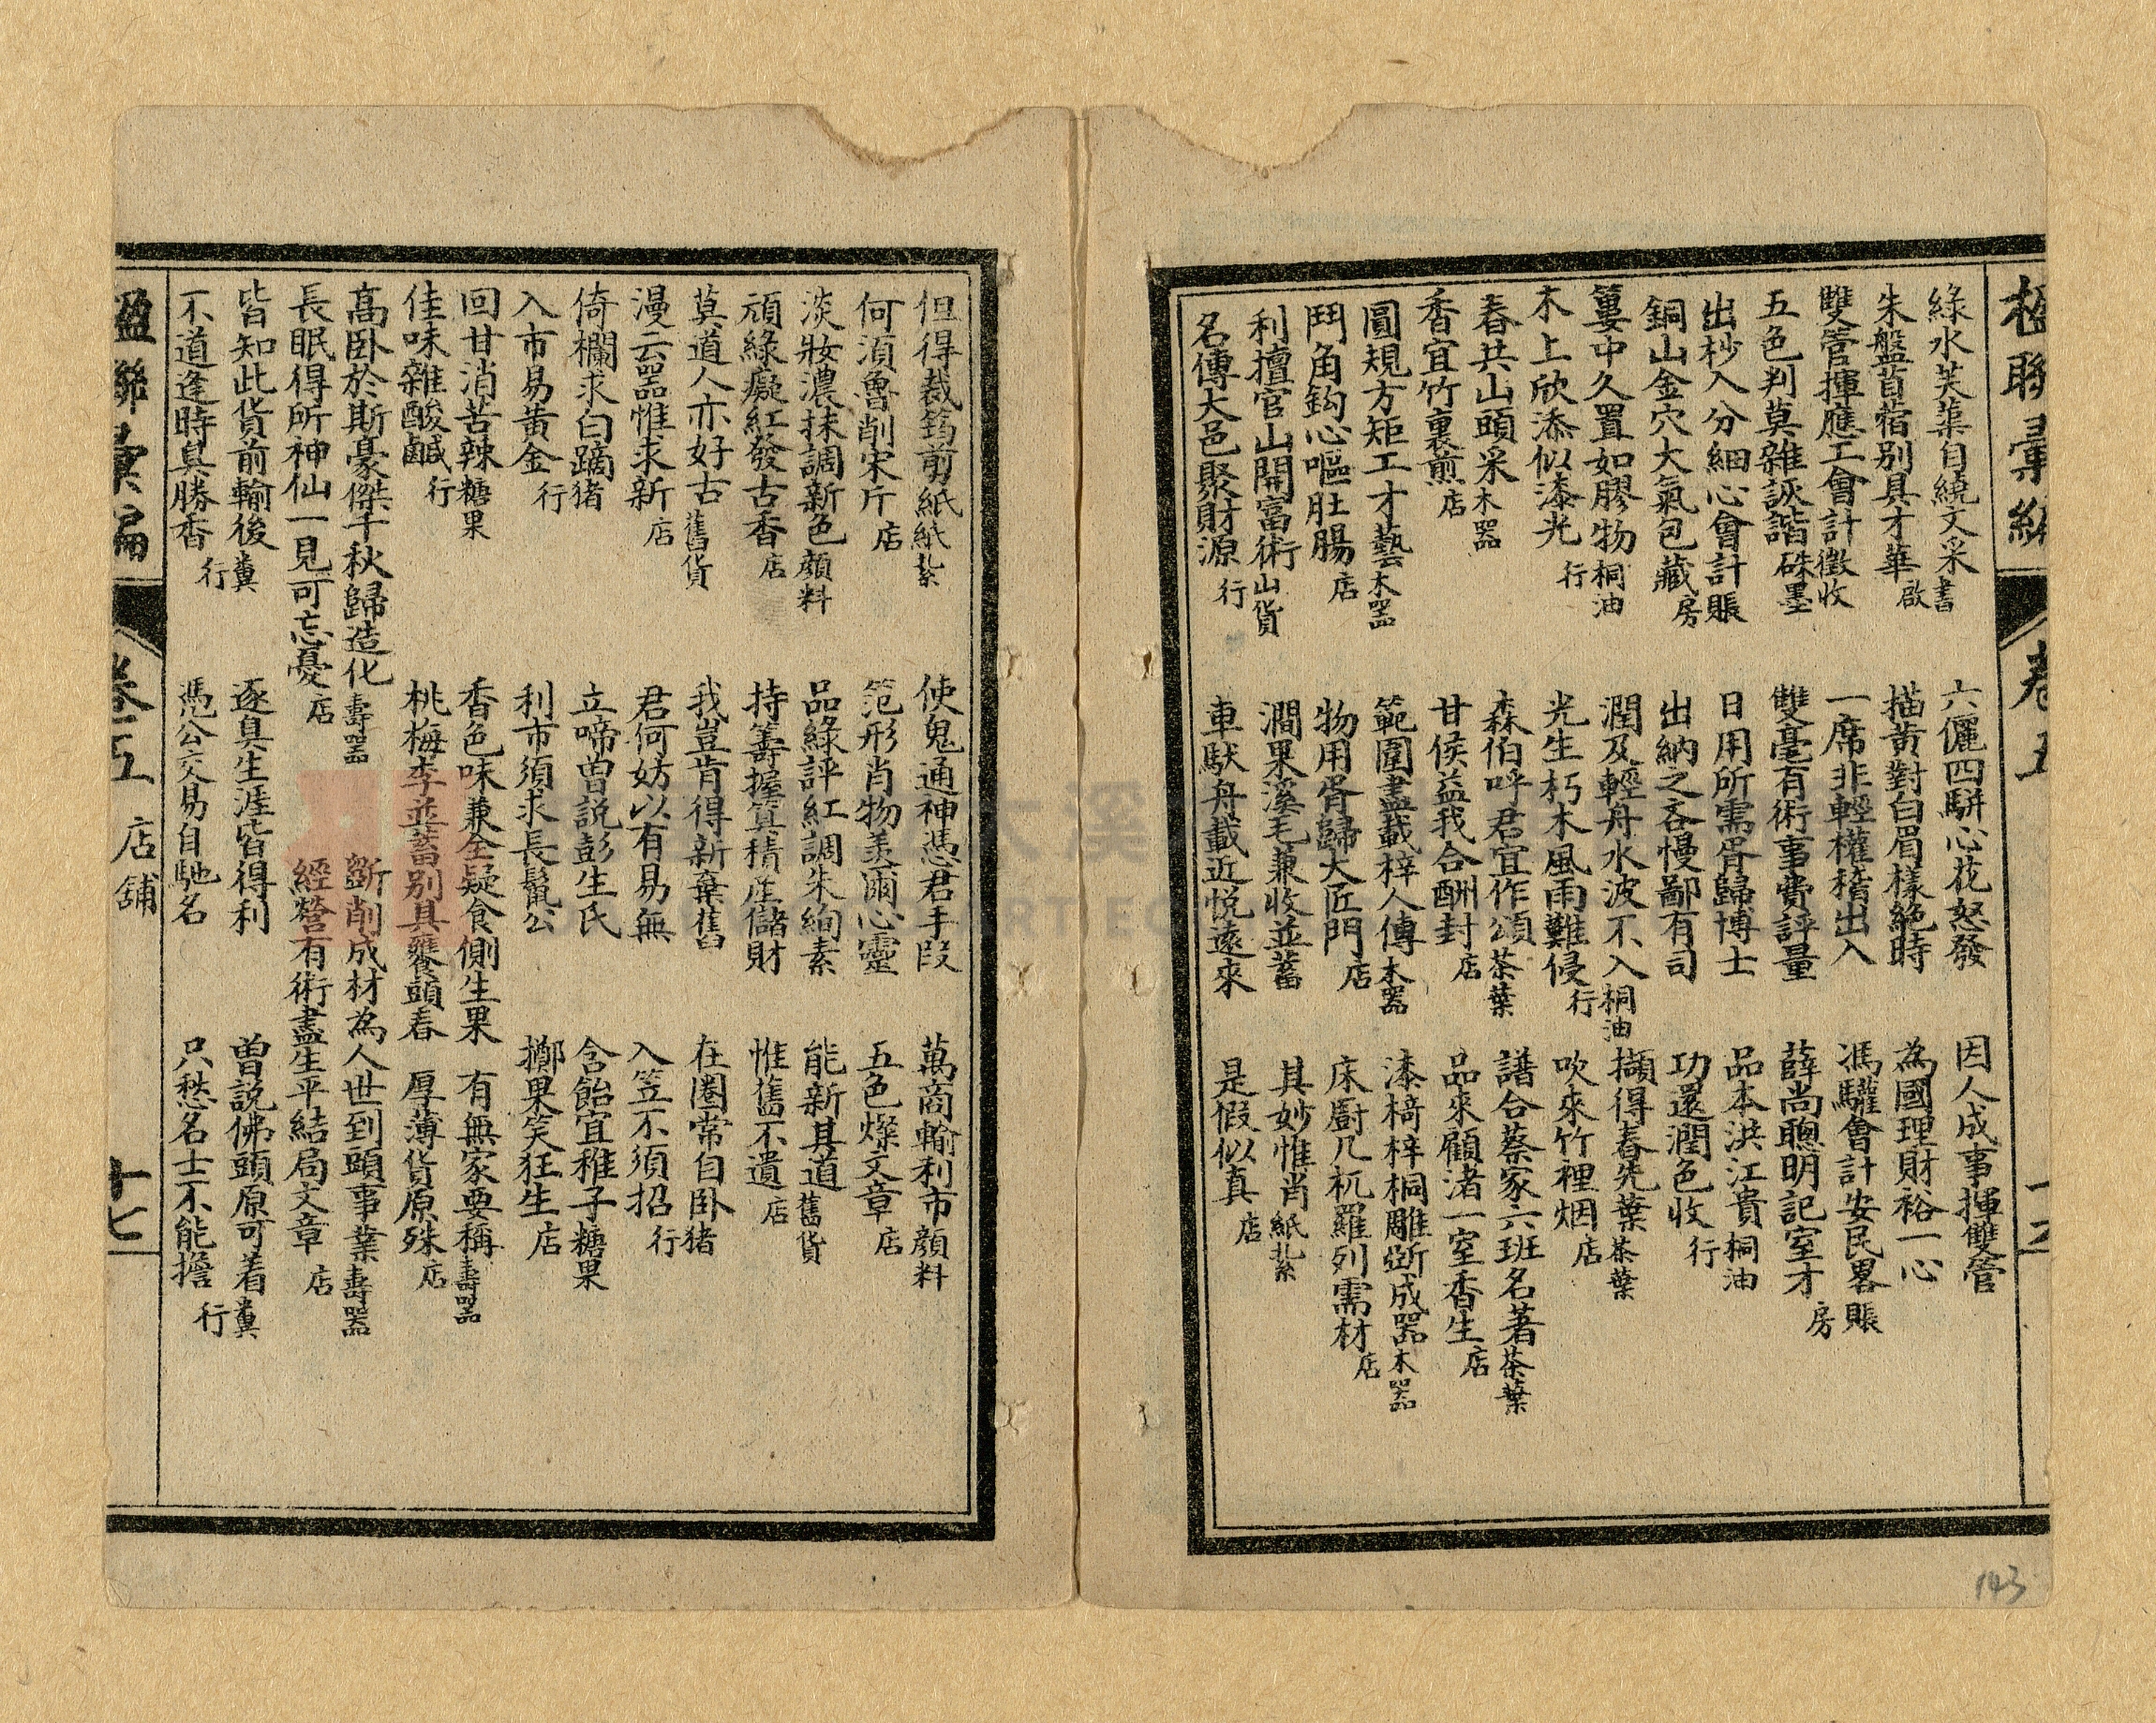 楹聯彙編 卷五
綠水芙蕖自繞文采書 六儷四駢心花怒發 因人成事揮雙管
朱盤苜蓿别具才華啟 描黃對白眉樣絕時 為國理財裕一心
雙管揮應工會計徵收 一席非輕權稽出入 馮驩會計安民畧賬
五色判莫雜詼諧硃墨 雙毫有術事費評量 薛尚聰明記室才房
出杪入分細心會計賬 日用所需胥歸博士 品本洪江貴桐油
銅山金穴大氣包藏房 出納之吝慢鄙有司 功還潤色收行
簍中久置如膠物桐油 潤及輕舟水波不入桐油 擷得春先葉茶葉
木上欣添似漆光行 光生朽木風雨難侵行 吹來竹裡烟店
春共山頭采木器 森伯呼君宜作頌茶葉 譜合蔡家六班名著茶葉
香宜竹裏煎店 甘侯益我合酬封店 品來顧渚一室香生店
圓規方矩工才藝木器 範圍盡載梓人傳木器 漆椅梓桐雕斲成器木器
鬥角鈎心嘔肚腸店 物用胥歸大匠門店 床廚几杌羅列需材店
利擅官山開富術山貨 澗果溪毛兼收並蓄 其妙惟肖紙紮
名傳大邑聚財源行 車馱舟載近悅遠來 是假似真店
但得裁筠剪紙紙紮 使鬼通神憑君手段 萬商輸利市顏料
何須魯削宋斤店 范形肖物羡爾心靈 五色燦文章店
淡妝濃抹調新色顏料 品綠評紅調朱絢素 能新其道舊貨
頑綠癡紅發古香店 持籌握算積産儲財 惟舊不遺店
莫道人亦好古舊貨 我豈肯得新棄舊 在圈常自卧猪
漫云器惟求新店 君何妨以有易無 入笠不須招行
倚欄求白蹢猪 立啼曾説彭生氏 含飴宜稚子糖果
入市易黃金行 利市須求長鬣公 擲果笑狂生店
回甘消苦辣糖果 香色味兼全疑食側生果 有無家要稱壽器
佳味雜酸鹹行 桃梅李並蓄別具甕頭春 厚薄貨原殊店
高卧於斯豪傑千秋歸造化壽器 斲削成材為人世到頭事業壽器
長眠得所神仙一見可忘憂店 經營有術盡生平結局文章店
皆知此貨前輸後糞 逐臭生涯皆得利 曾説佛頭原可着糞
不道逢時臭勝香行 憑公交易自馳名 只愁名士不能擔行
楹聯彙編 卷五 店舖 十七
143